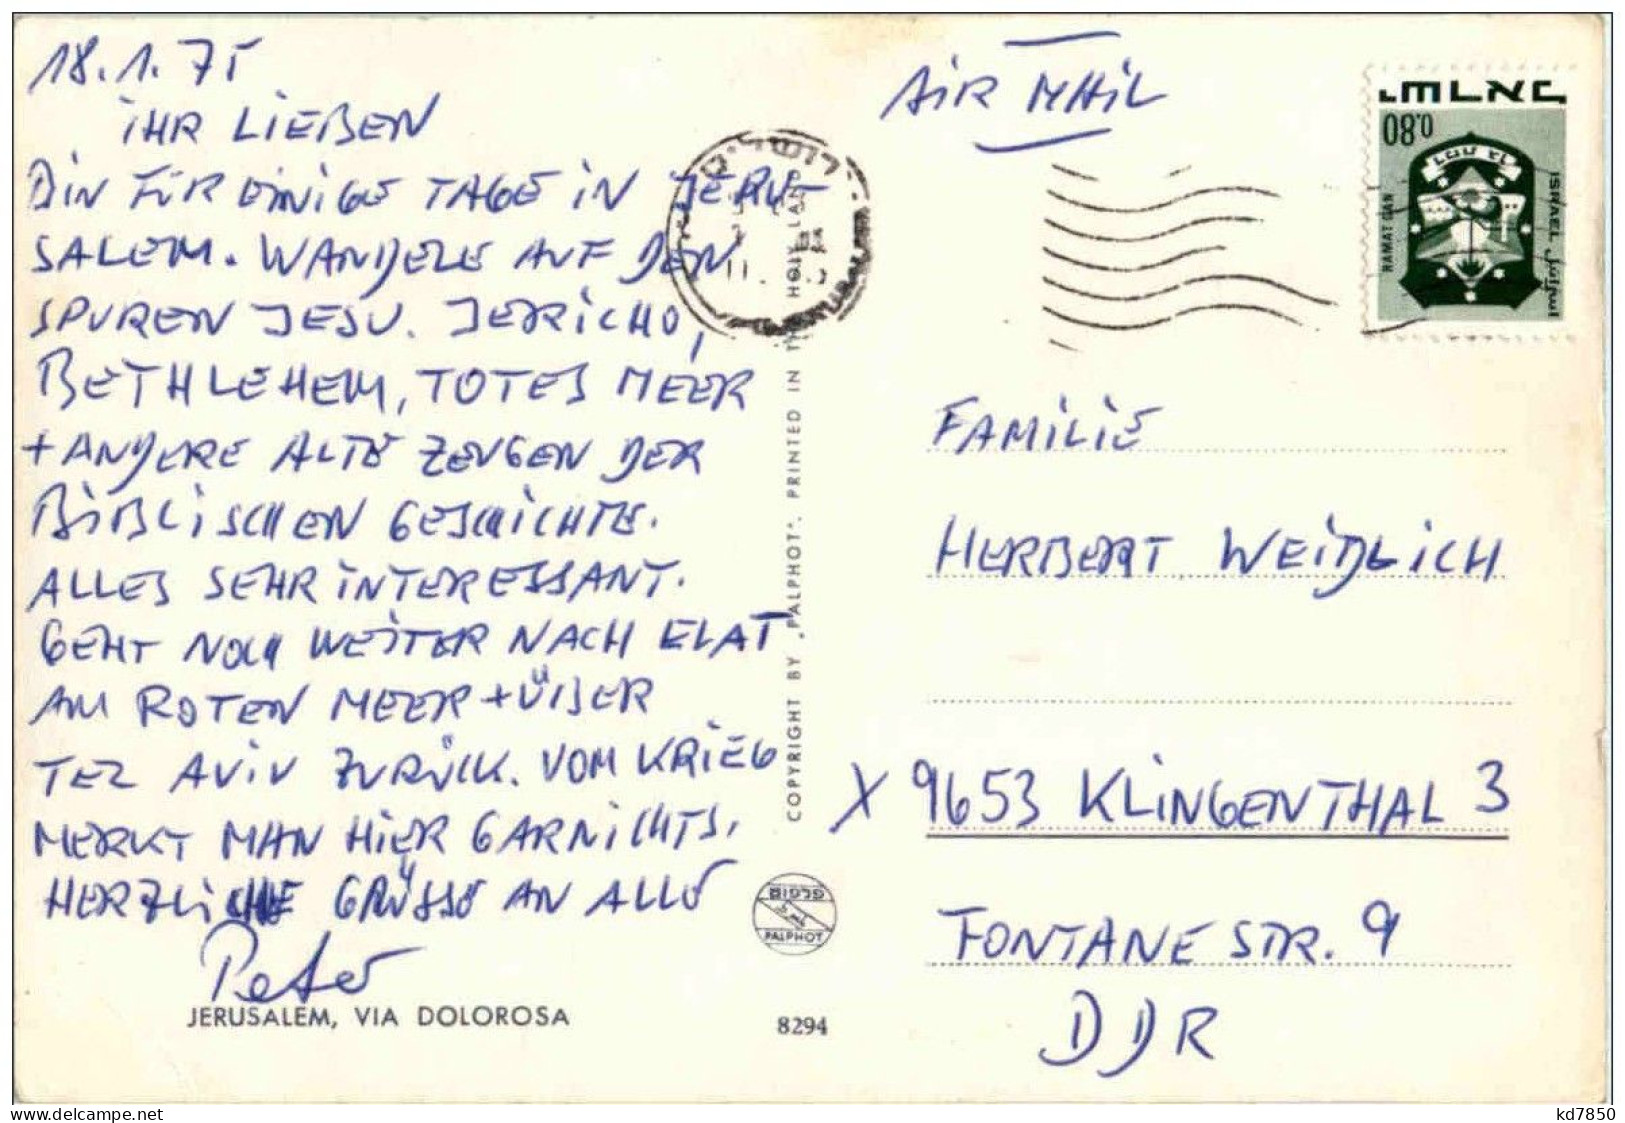 18.1.75
IHR LIEBEN
BIN FÜR EINIGE TAGE IN JERU-
SALEM. WANDELE AUF DEN
SPUREN JESU. JERICHO,
BETHLEHEM, TOTES MEER
+ ANDERE ALTE ZEUGEN DER
BIBLISCHEN GESCHICHTE.
ALLES SEHR INTERESSANT.
GEHT NOCH WEITER NACH ELAT
AM ROTEN MEER + ÜBER
TEL AVIV ZURÜCK. VOM KRIEG
MERKT MAN HIER GARNICHTS.
HERZLICHE GRÜSSE AN ALLE
Peter
JERUSALEM, VIA DOLOROSA
COPYRIGHT BY „PALPHOT". PRINTED IN THE HOLY LAND
PALPHOT
8294
AIR MAIL
ירושלים
0.80
ישראל
ISRAEL
إسرائيل
RAMAT GAN
רמת גן
FAMILIE
HERBERT WEIDLICH
X 9653 KLINGENTHAL 3
FONTANE STR. 9
DDR
www.delcampe.net
kd7850